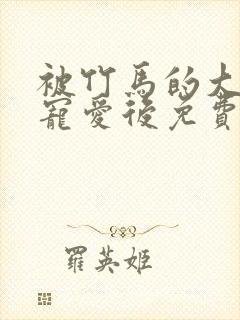 被竹馬的大
寵愛後免費
羅英姬